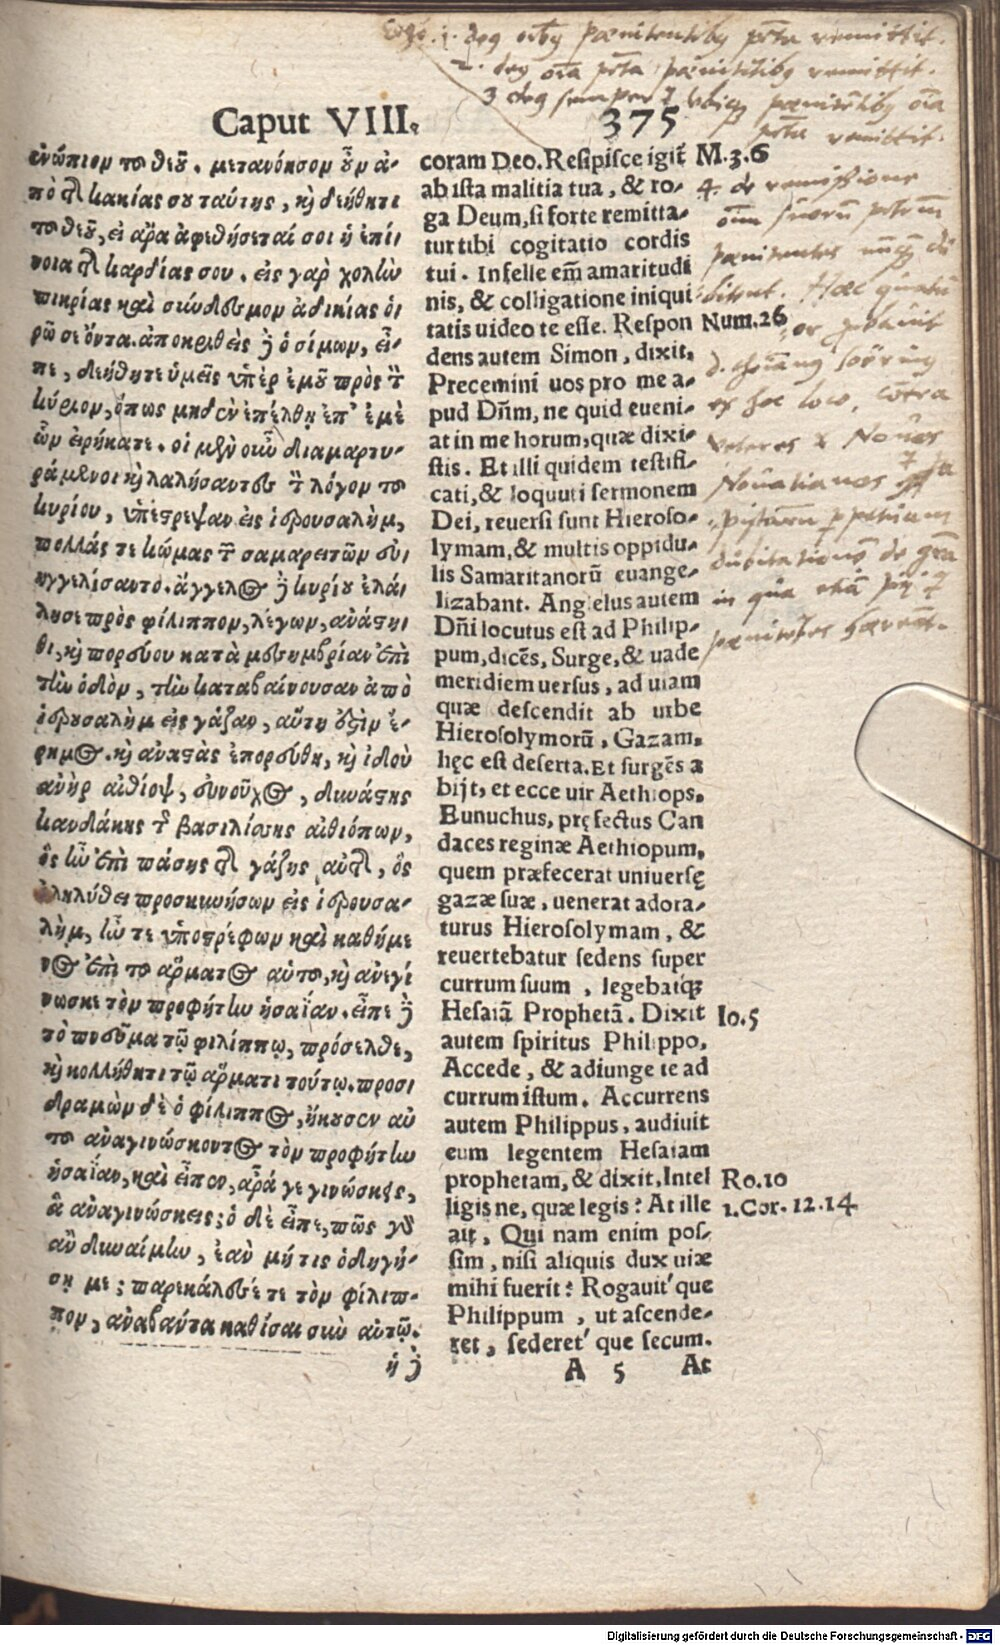 deus omnibus pænitentibus remittit.
pænitentibus remittit.
3 deus semper
remittit.
Caput VIII.
375
ἐνώπιον τοῦ θεοῦ. μετανόησον οὖν ἀ-
πὸ τῆς κακίας σου ταύτης, καὶ δεήθητι
τοῦ θεοῦ, εἰ ἄρα ἀφεθήσεταί σοι ἡ ἐπί-
νοια τῆς καρδίας σου. εἰς γαρ χολὴν
πικρίας καὶ σύνδεσμον ἀδικίας ὁ-
ρῶ σε ὄντα. ἀποκριθεὶς δὲ ὁ σίμων, εἶ-
πε, δεήθητε ὑμεῖς ὑπὲρ ἐμοῦ πρὸς τὸν
κύριον, ὅπως μηδὲν ἐπέλθῃ ἐπ' ἐμὲ
ὧν εἰρήκατε. οἱ μὲν οὖν διαμαρτυ-
ράμενοι καὶ λαλήσαντες τὸν λόγον τοῦ
κυρίου, ὑπέστρεψαν εἰς ἱερουσαλὴμ,
πολλάς τε κώμας τῶν σαμαρειτῶν εὐη-
γγελίσαντο. ἄγγελος δὲ κυρίου ἐλά-
λησε πρὸς φίλιππον, λέγων, ἀνάστη-
θι, καὶ πορεύου κατὰ μεσημβρίαν ἐπὶ
τὴν ὁδὸν, τὴν καταβαίνουσαν ἀπὸ
ἱερουσαλὴμ εἰς γάζαν, αὕτη ἐστὶν ἔ-
ρημος. καὶ ἀναστὰς ἐπορεύθη, καὶ ἰδοὺ
ἀνὴρ αἰθίοψ, εὐνοῦχος, δυνάστης
κανδάκης τῆς βασιλίσσης αἰθιόπων,
ὃς ἦν ἐπὶ πάσης τῆς γάζης αὐτῆς, ὃς
ἐληλύθει προσκυνήσων εἰς ἱερουσα-
λὴμ, ἦν τε ὑποστρέφων καὶ καθήμε
νος ἐπὶ τοῦ ἅρματος αὐτοῦ, καὶ ἀνεγί
νωσκε τὸν προφήτην ἡσαΐαν. εἶπε δὲ
τὸ πνεῦμα τῷ φιλίππῳ, πρόσελθε,
καὶ κολλήθητι τῷ ἅρματι τούτῳ. προσ
δραμὼν δὲ ὁ φίλιππος, ἤκουσεν αὐ
τοῦ ἀναγινώσκοντος τὸν προφήτην
ἡσαΐαν, καὶ εἶπεν, ἆρά γε γινώσκεις,
ἃ ἀναγινώσκεις; ὁ δὲ εἶπε, πῶς γὰρ
ἂν δυναίμην, ἐὰν μή τις ὁδηγή-
σῃ με; παρεκάλεσέ τε τὸν φίλιπ-
πον, ἀναβάντα καθίσαι σὺν αὐτῷ.
ἡ δὲ
coram Deo. Resipisce igit̃
ab ista malitia tua, & ro-
ga Deum, si forte remitta-
tur tibi cogitatio cordis
tui. In felle em̃ amaritudi
nis, & colligatione iniqui-
tatis uideo te esse. Respon
dens autem Simon, dixit,
Precemini uos pro me a-
pud Dñm, ne quid eueni-
at in me horum, quæ dixi-
stis. Et illi quidem testifi-
cati, & loquuti sermonem
Dei, reuersi sunt Hieroso-
lymam, & multis oppidu-
lis Samaritanorũ euange-
lizabant. Angelus autem
Dñi locutus est ad Philip-
pum, dicẽs, Surge, & uade
meridiem uersus, ad uiam
quæ descendit ab urbe
Hierosolymorũ, Gazam,
hęc est deserta. Et surgẽs a
bijt, et ecce uir Aethiops,
Eunuchus, pręfectus Can
daces reginæ Aethiopum,
quem præfecerat uniuersę
gazæ suæ, uenerat adora-
turus Hierosolymam, &
reuertebatur sedens super
currum suum, legebatq́;
Hesaiã Prophetã. Dixit
autem spiritus Philippo,
Accede, & adiunge te ad
currum istum. Accurrens
autem Philippus, audiuit
eum legentem Hesaiam
prophetam, & dixit, Intel
ligis ne, quæ legis? At ille
ait, Qui nam enim pos-
sim, nisi aliquis dux uiæ
mihi fuerit? Rogauit' que
Philippum, ut ascende-
ret, sederet' que secum.
A 5 At
M.3.6
4. de remissione
Num.26
ex hoc loco, contra
veteres & Novos
Io.5
Ro.10
1.Cor.12.14
Digitalisierung gefördert durch die Deutsche Forschungsgemeinschaft - DFG